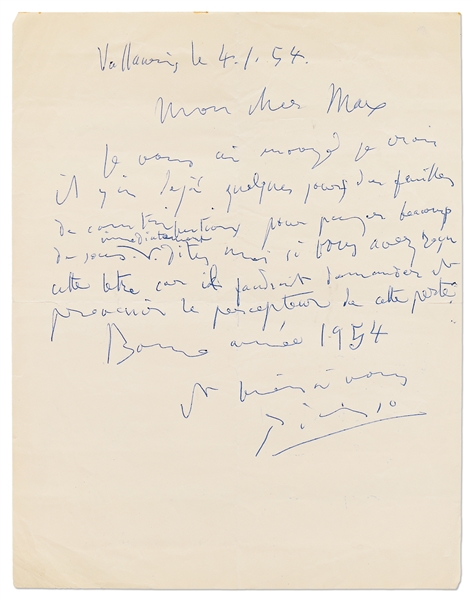 Vallauris le 4.1.54.
Mon cher Max
Je vous ai envoyé je crois
il y a dejà quelques jours des feuilles
de contributions pour payer beaucoup
immediatement
de sous. dites moi si vous avez reçu
cette lettre car il faudrait demander et
prevenir le percepteur de cette perte.
Bonne année 1954
et bien à vous
Picasso